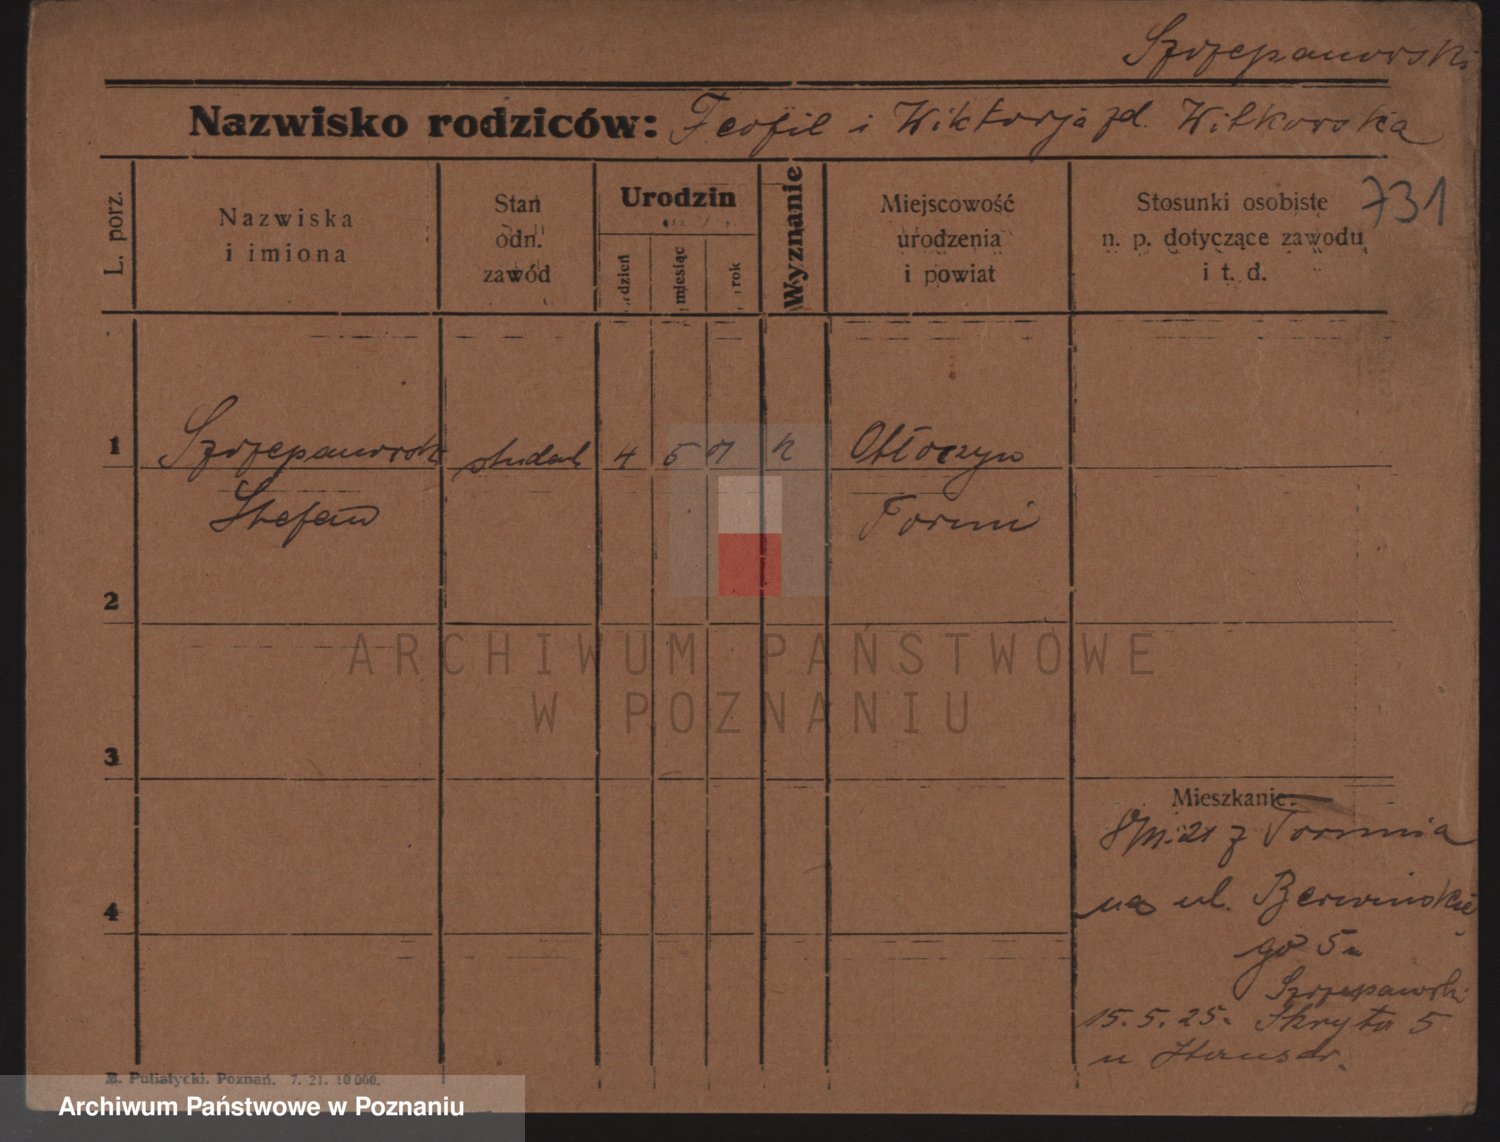 Szczepanowski
Nazwisko rodziców: Teofil i Wiktorja zd. Witkowska
731
L. porz.
Nazwiska
i imiona
Stan
odn.
zawód
Urodzin
dzień
miesiąc
rok
Wyznanie
Miejscowość
urodzenia
i powiat
Stosunki osobiste
n. p. dotyczące zawodu
i t. d.
1 Szczepanowski student 4 5 01 k Otłoczyn
Stefan Toruń
2
3
4
Mieszkanie.
21 z Torunia
na ul. Berwińskie
go 5 u
Szczepanowski
15.5.25. Skryta 5
u
B. Putiatycki. Poznań. 7. 21. 10 000.
ARCHIWUM PAŃSTWOWE
W POZNANIU
Archiwum Państwowe w Poznaniu